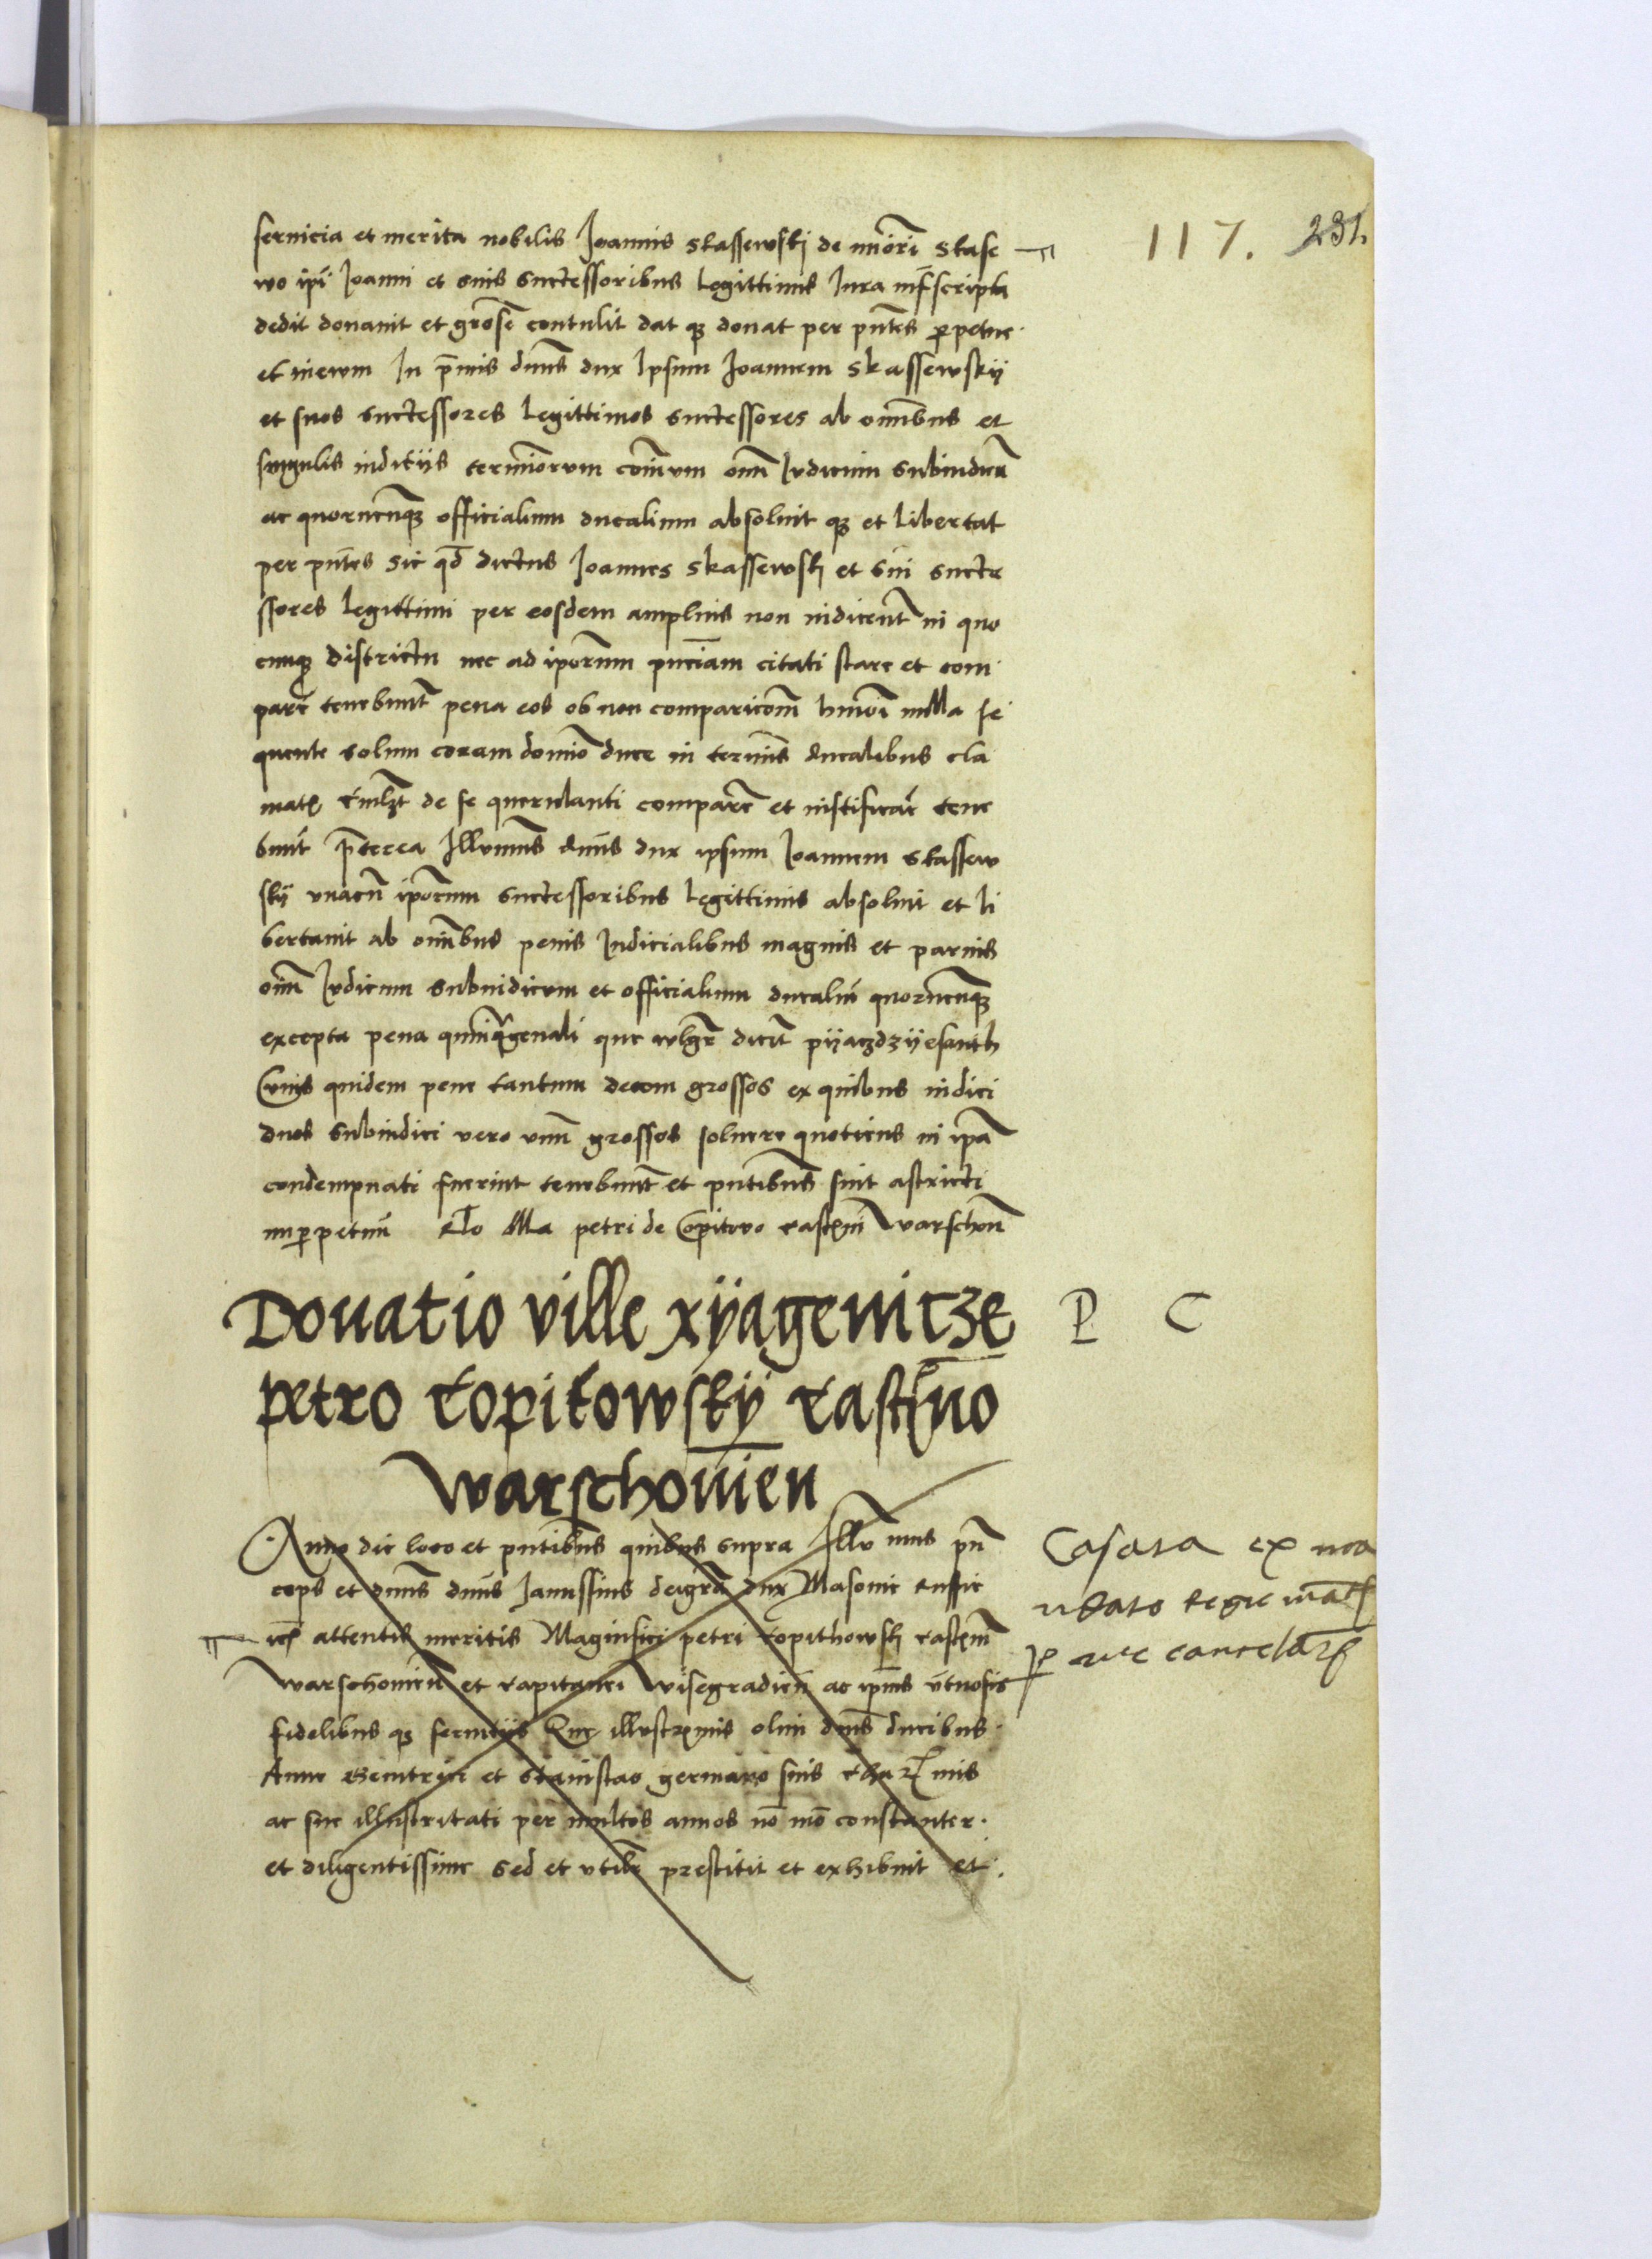 117. 231.
seruicia et merita nobilis Joannis Skassewski de minori Skase
wo ipi Joanni et suis successoribus legittimis Jura infrascripta
dedit donauit et grose contulit dat q3 donat per pntes perpetue
et in ewm In primis dnus dux Ipsum Joannem Skassewskij
et suos successores legittimos successores ab omibus et
singulis iuditijs terminorum coium oim Judicum Subiudicu
ac quorucunq3 officialium ducalium absoluit q3 et libertat
per pntes Sic qd dictus Joannes Skassewski et sui succe
ssores legittimi per eosdem amplius non iudicent in quo
cunq3 districtu nec ad iporum pnciam citati stare et com
pare tenebunt pena eos ob non comparicom hmoi nulla se
quente solum coram domio duce in terminis ducalibus cla
mati de se querulanti compare et iustificare tene
bunt preterea Illrmus dnus dux ipsum Joannem Skassew
skij vnacu iporum successoribus legittimis absoluit et li
bertauit ab omibus penis Judicialibus magnis et paruis
oim Judicum Subiudicum et officialium ducaliu quorucunq3
excepta pena quinqgenali que wlgr dicit pijaczdzijesanth
Cuius quidem pene tantum decem grossos ex quibus iudici
duos subiudici vero vnu grossos soluere quotiens in ipa
condempnati fuerint tenebunt et pntibus sint astricti
inperpetuu Rlo Ma petri de Copitowo castni Warschon
Donatio ville xijagenicze P C
petro Kopitowskij Castno
Warschouien
Anno die loco et pntibus quibus supra Illr mus prin
ceps et dnus dnus Janussius dei gra dux Masouie Russie
etc attentis meritis Magnifici petri Kopithowski castni
Warschouien et capitanei Wisegradien ac ipius vtuosis
fidelibus q3 seruitijs Que illustrmis olim dnis ducibus
Anne Genitrici et Stanislao germano suis charmis
ac sue illustritati per multos annos no mo constanter
et diligentissime sed et vtilr prestitit et exhibuit et
Casata ex ma
ndato Regie mats
per me cancelar